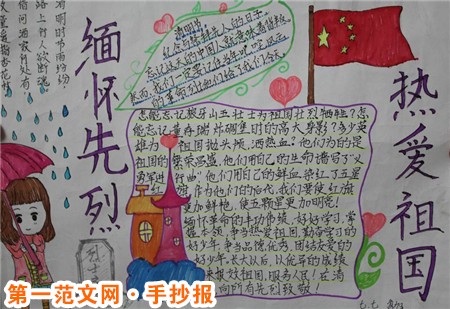 清明时节雨纷纷，
路上行人欲断魂
借问酒家何处有？
缅怀先烈
清明节
热爱祖国
怎能忘记狼牙山五壮士为祖国壮烈牺牲？怎
能忘记董存瑞炸碉堡时的高大身影？多少英
雄为祖国抛头颅、洒热血！他们为的是
祖国的繁荣昌盛，他们用自己的生命谱写了"义
勇军进行曲"，他们用自己的鲜血染红了五星
更加鲜艳，使五颗星更加明亮！
缅怀革命的丰功伟绩，好好学习，掌
握本领，争当热爱祖国、勤奋学习的
好少年，争当品德优秀、团结友爱的
好少年，长大以后，以优异的成绩
来报效祖国、服务人民！在清
向所有先烈致敬！
第一范文网·手抄报